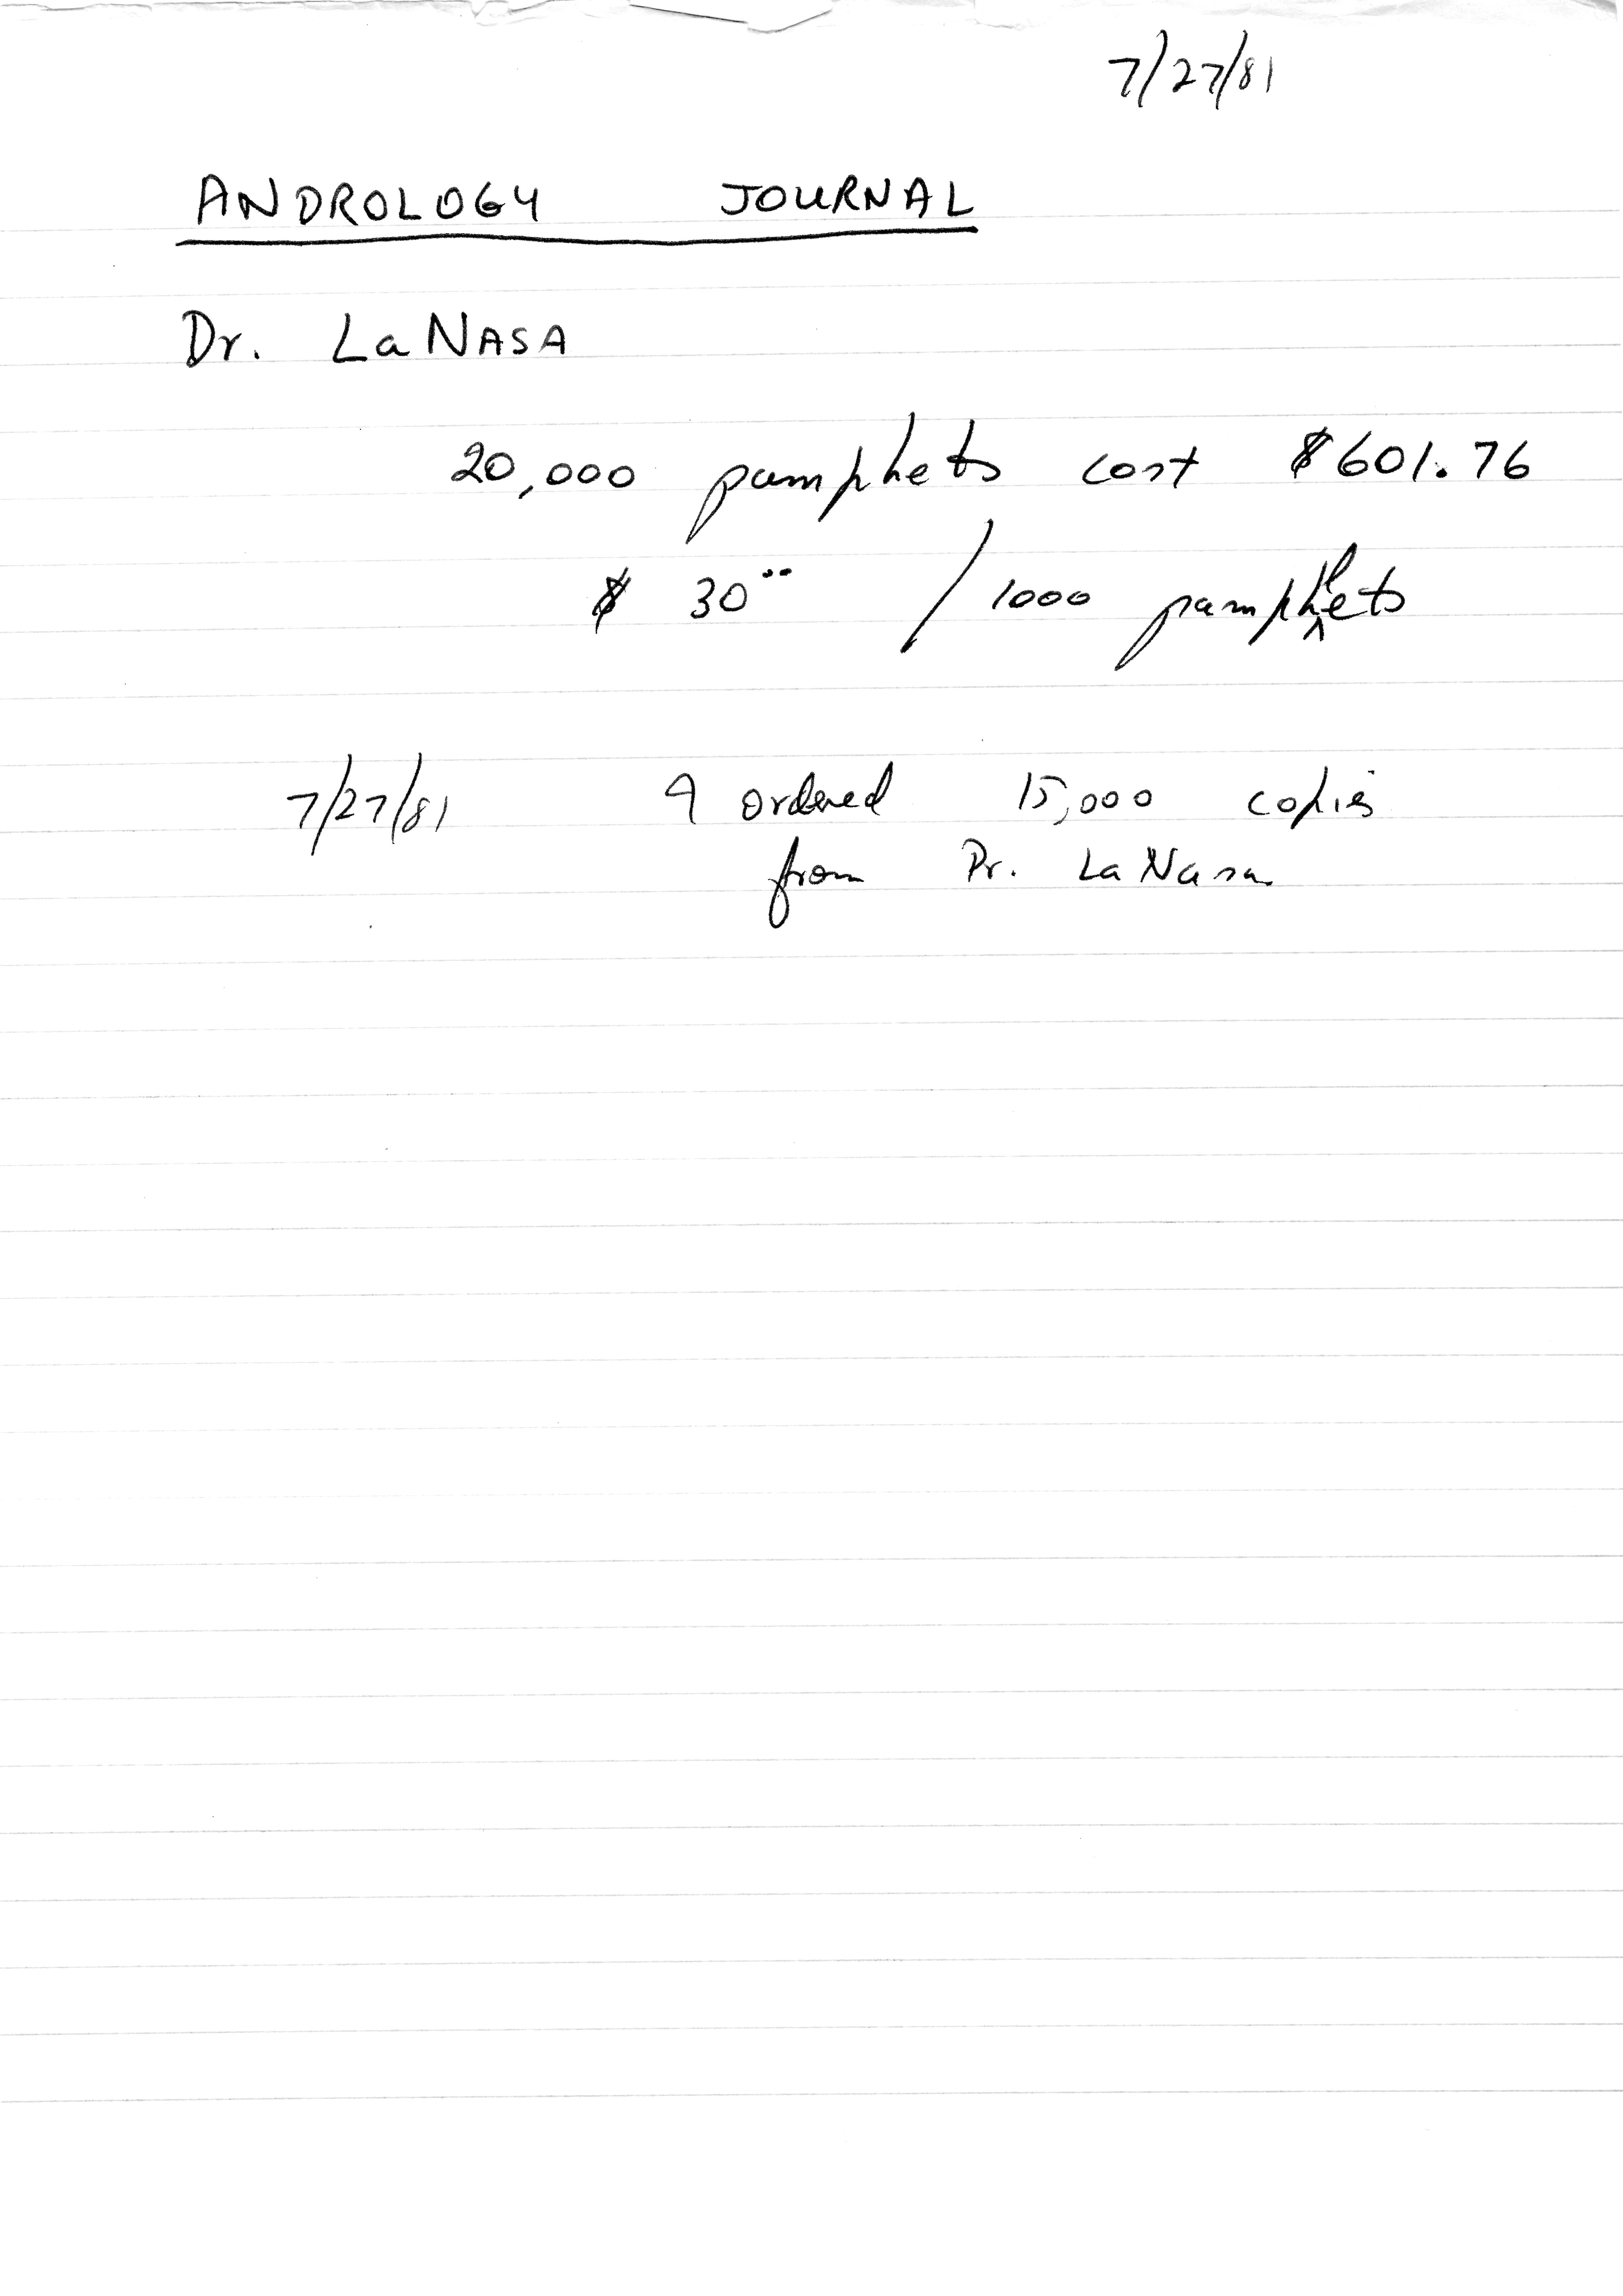 7/27/81
ANDROLOGY JOURNAL
Dr. LaNASA
20,000 pamphets cost $601.76
$ 30⁰⁰ / 1000 pamphlets
7/27/81 I ordered 15,000 copies
from Dr. LaNasa